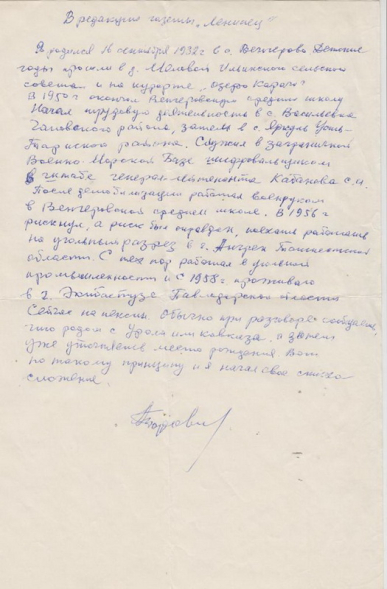 В редакцию газеты „Ленинец"
Я родился 16 сентября 1932 г в с. Венгерово Детские
годы прошли в д. Мамвой Ильинского сельского
совета и на курорте „Озеро Карачи"
В 1950 г окончил Венгеровскую среднюю школу
Начал трудовую деятельность в с. Васильевка
Чановского района, затем в с. Яркуль Усть-
Таркского района. Служил в заграничной
Военно-Морской Базе шифровальщиком
в штабе генерал-лейтенанта Кабанова С.И.
После демобилизации работал военруком
в Венгеровской средней школе. В 1956 г
рискнул, а риск был оправдан, поехал работать
на угольный разрез в г. Ангрен Ташкентской
области С тех пор работал в угольной
промышленности и с 1958 г проживаю
в г. Экибастузе Павлодарской области
Сейчас на пенсии. Обычно при разговоре сообщаем,
что родом с Урала или Кавказа, а затем
уже уточняем место рождения Вот
по такому принципу и я начал свое
сложение.